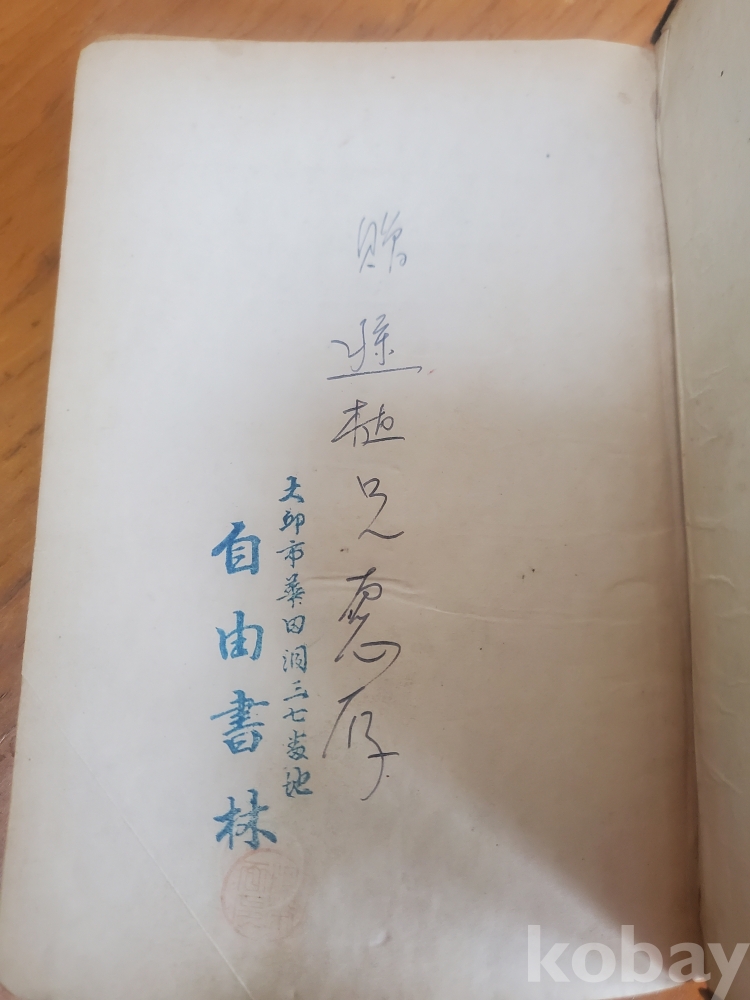 贈 植兄惠存
大邱市華田洞三七番地
自由書林
kobay